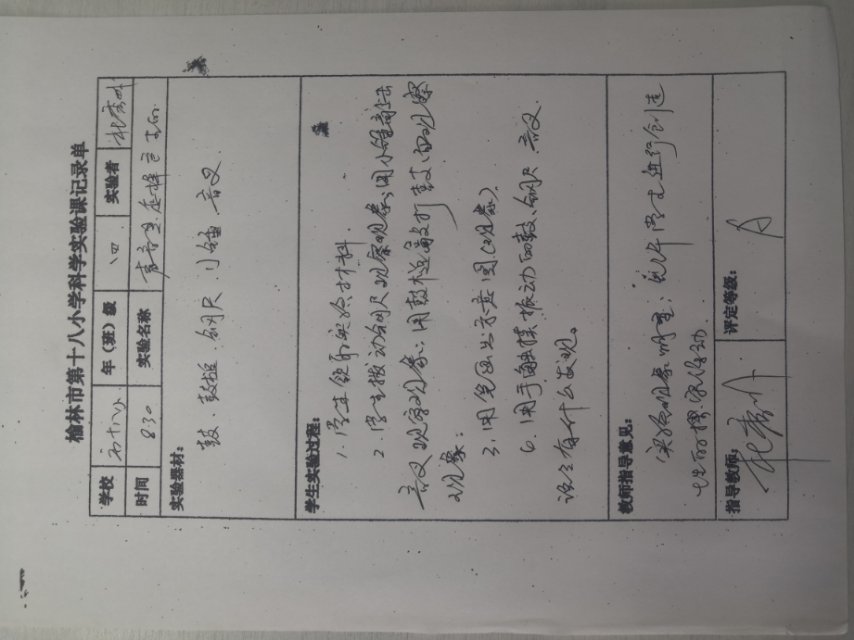 榆林市第十八小学科学实验课记录单
学校 年（班）级 四 实验者
时间 830 实验名称 声音是怎样产生的
实验器材：
鼓、鼓槌、钢尺、小锤、音叉
学生实验过程：
1、学生领取实验材料.
2、学生拨动钢尺观察现象；用小锤敲击
音叉观察现象；用鼓槌敲打鼓面观察
现象；
3、用笔画出示意图（现象）
6、用手触摸振动的鼓、钢尺、音叉.
说说有什么发现。
教师指导意见：
实验现象明显；学生进行创造
性的探究活动.
指导教师： 评定等级： A